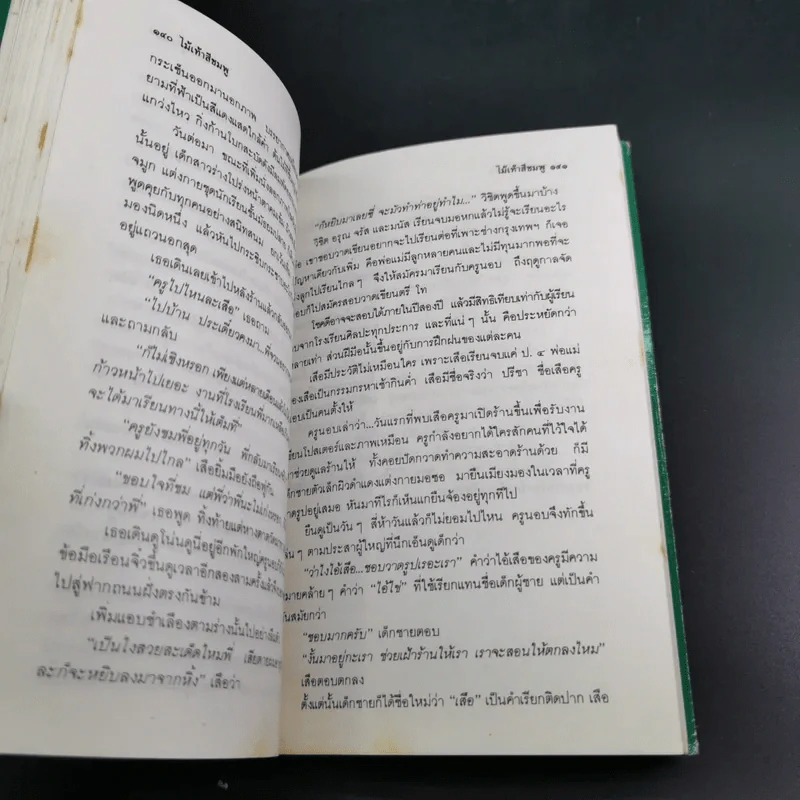 ๑๔๐ ไม้เท้าสีชมพู
กระเซ็นออกมานอกภาพ บรรยากาศ
ยามที่ฟ้าเป็นสีแดงแสดใกล้ค่ำ ต้นไม้
แกว่งไหว กิ่งก้านโบกสะบัด
วันต่อมา ขณะที่เพิ่มนั่ง
นั้นอยู่ เด็กสาวร่างโปร่งหน้าตา
จมูก แต่งกายชุดนักเรียนชั้นมัธยมปลาย
พูดคุยกับทุกคนอย่างสนิทสนม
มองนิดหนึ่ง แล้วหันไปกระซิบกระซาบ
อยู่แถวนอกสุด
เธอเดินเลยเข้าไปหลังร้านแล้วกลับ
“ครูไปไหนละเสือ” เธอถาม
“ไปบ้าน ประเดี๋ยวคงมา...
และถามกลับ
“ก็ไม่เชิงหรอก เพียงแต่หลายเดือน
ก้าวหน้าไปเยอะ งานที่โรงเรียนที่
จะได้มาเรียนทางนี้ให้เต็มที่”
“ครูยังชมพี่อยู่ทุกวัน พี่กลับมาเรียน
ทิ้งพวกผมไปไกล” เสือยิ้มมือยังถือพู่กัน
“ขอบใจที่ชม แต่พี่ว่าพี่นะไม่เก่ง
ที่เก่งกว่าพี่” เธอพูด ทิ้งท้ายแต่หางตา
เธอเดินดูโน่นดูนี่อยู่อีกพักใหญ่ครูนอบก็
ข้อมือเรือนจิ๋วขึ้นดูเวลาอีกสองสามครั้งแล้วก็
ไปสู่ฟากถนนฝั่งตรงกันข้าม
เพิ่มแอบชำเลืองตามร่างนั้นไปอย่าง
“เป็นไงสวยสะเด็ดไหมพี่ เสียดาย
ละก็จะหยิบลงมาจากหิ้ง” เสือว่า
ไม้เท้าสีชมพู ๑๔๑
“ก็หยิบมาเลยซี่ จะมัวทำท่าอยู่ทำไม...” วิชิตพูดขึ้นมาบ้าง
วิชิต อรุณ จรัส และมนัส เรียนจบมอหกแล้วไม่รู้จะเรียนอะไร
ต่อ เขาชอบวาดเขียนอยากจะไปเรียนต่อที่เพาะช่างกรุงเทพฯ ก็เจอ
ปัญหาเดียวกับเพิ่ม คือพ่อแม่มีลูกหลายคนและไม่มีทุนมากพอที่จะ
ส่งลูกไปเรียนไกลๆ จึงให้สมัครมาเรียนกับครูนอบ ถึงฤดูกาลจัด
สอบก็ไปสมัครสอบวาดเขียนตรี โท
โชคดีอาจจะสอบได้ภายในปีสองปี แล้วมีสิทธิเทียบเท่ากับผู้เรียน
จบจากโรงเรียนศิลปะทุกประการ และที่แน่ๆ นั้น คือประหยัดกว่า
หลายเท่า ส่วนฝีมือนั้นขึ้นอยู่กับการฝึกฝนของแต่ละคน
เสือมีประวัติไม่เหมือนใคร เพราะเสือเรียนจบแค่ ป. ๔ พ่อแม่
ของเสือเป็นกรรมกรหาเช้ากินค่ำ เสือมีชื่อจริงว่า ปรีชา ชื่อเสือครู
นอบเป็นคนตั้งให้
ครูนอบเล่าว่า...วันแรกที่พบเสือครูมาเปิดร้านขึ้นเพื่อรับงาน
เขียนโปสเตอร์และภาพเหมือน ครูกำลังอยากได้ใครสักคนที่ไว้ใจได้
มาช่วยดูแลร้านให้ ทั้งคอยปัดกวาดทำความสะอาดร้านด้วย ก็มี
เด็กชายตัวเล็กผิวดำแดงแต่งกายมอซอ มายืนเมียงมองในเวลาที่ครู
วาดรูปอยู่เสมอ หันมาทีไรก็เห็นแกยืนจ้องอยู่ทุกทีไป
ยืนดูเป็นวันๆ สี่ห้าวันแล้วก็ไม่ยอมไปไหน ครูนอบจึงทักขึ้น
เล่นๆ ตามประสาผู้ใหญ่ที่นึกเอ็นดูเด็กว่า
“ว่าไงไอ้เสือ...ชอบวาดรูปเรอะเรา” คำว่าไอ้เสือของครูมีความ
หมายคล้ายๆ คำว่า “ไอ้ไข่” ที่ใช้เรียกแทนชื่อเด็กผู้ชาย แต่เป็นคำ
ทันสมัยกว่า
“ชอบมากครับ” เด็กชายตอบ
“งั้นมาอยู่กะเรา ช่วยเฝ้าร้านให้เรา เราจะสอนให้ตกลงไหม”
เสือตอบตกลง
ตั้งแต่นั้นเด็กชายก็ได้ชื่อใหม่ว่า “เสือ” เป็นคำเรียกติดปาก เสือ